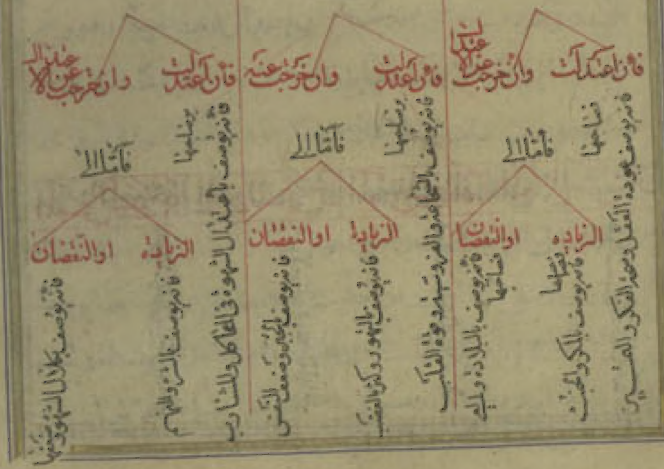 فان اعتدلت
وان خرجت عن الاعتدال
فصاحبها
فانه يوصف بجودة العقل وصحة الفكر و
فأما الى
الزياده
او النقصان
فصاحبها
فانه يوصف بالمكر والخبث
فصاحبها
فانه يوصف بالبلادة و
فان اعتدلت
وان خرجت عنه
فانه يوصف بالشجاعة و وقوة القلب
فأما الى
الزيادة
او النقصان
فانه يوصف بالتهور وكثرة الغضب
فانه يوصف بالجبن وضعف النفس
فان اعتدلت
وان خرجت عن الاعتدال
فانه يوصف باعتدال الشهوة فى المآكل والمشارب
فأما الى
الزيادة
او النقصان
فانه يوصف بالشره والنهم
فانه يوصف بكلال الشهوة وضعفها